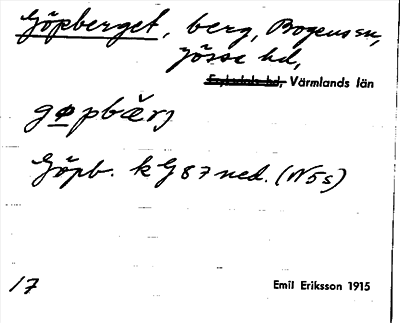 Göpberget, berg, Bogens sn,
Jösse hd,
Fryksdals hd, Värmlands län
gøpbærj
Göpb. k G 87 ned. (N5s)
17
Emil Eriksson 1915